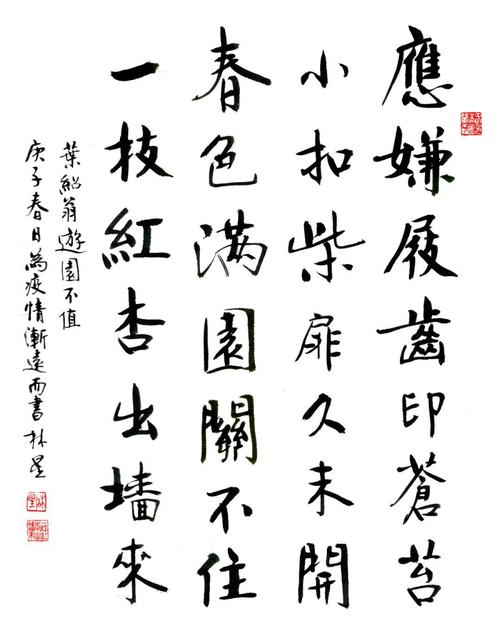 應嫌屐齒印蒼苔
小扣柴扉久未開
春色滿園關不住
一枝紅杏出墻來
葉紹翁遊園不值
庚子春日為疫情漸遠而書 林星